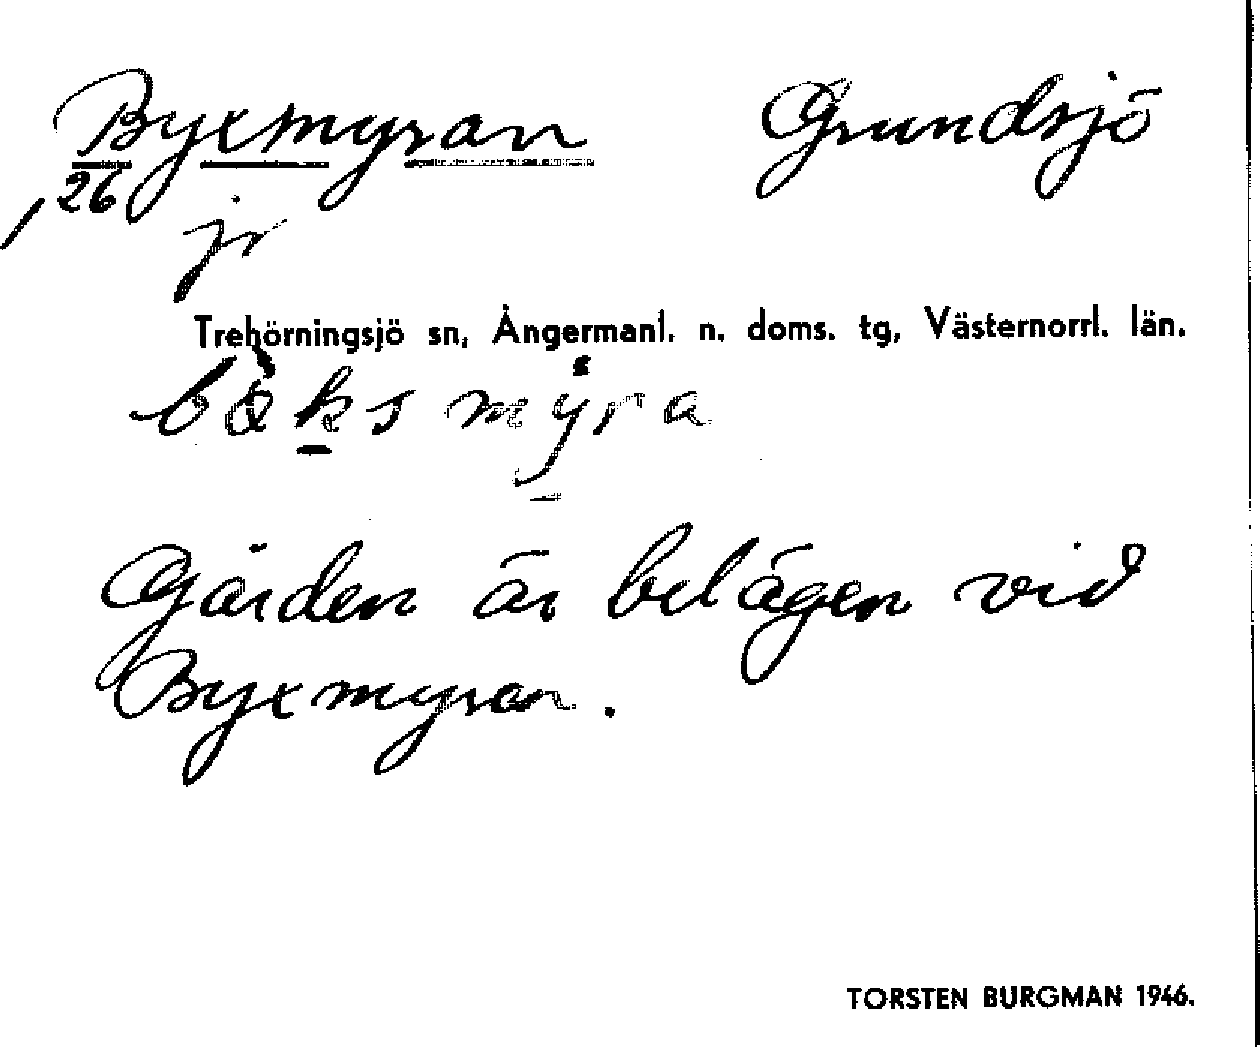 Byxmyran Grundsjö
1,26
jr
Trehörningsjö sn, Ångermanl. n. doms. tg, Västernorrl. län.
Gården är belägen vid
Byxmyran.
TORSTEN BURGMAN 1946.